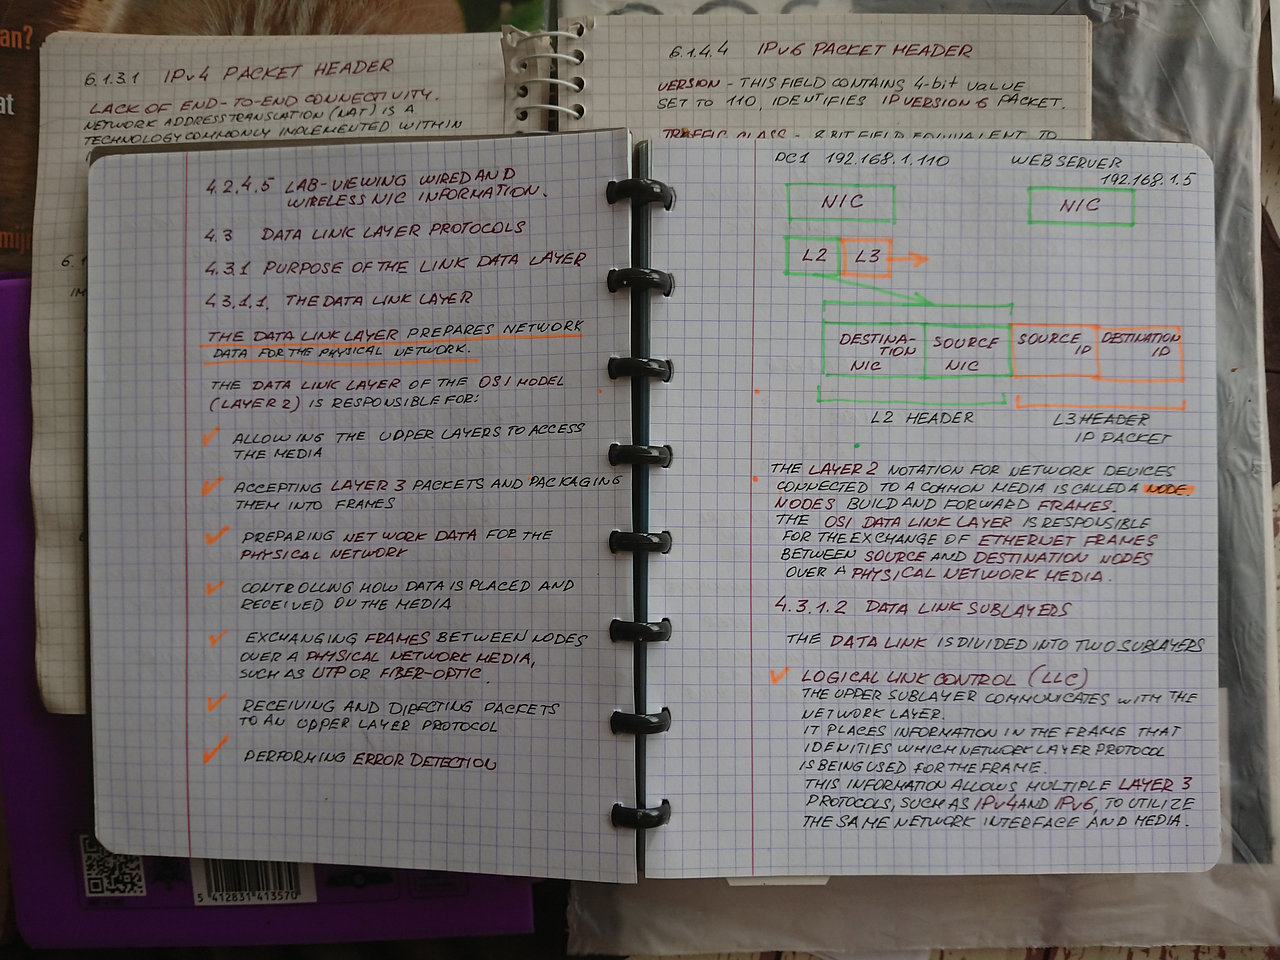 an?
at
mij
6.1.3.1 IPv4 PACKET HEADER
LACK OF END-TO-END CONNECTIVITY.
NETWORK ADDRESS TRANSLATION (NAT) IS A
TECHNOLOGY COMMONLY IMPLEMENTED WITHIN
6.1.4.4 IPv6 PACKET HEADER
VERSION - THIS FIELD CONTAINS 4-bit VALUE
SET TO 110, IDENTIFIES IP VERSION 6 PACKET.
TRAFFIC CLASS - 8 BIT FIELD EQUIVALENT TO
6.1
IM
4.2.4.5 LAB-VIEWING WIRED AND
WIRELESS NIC INFORMATION.
4.3 DATA LINK LAYER PROTOCOLS
4.3.1 PURPOSE OF THE LINK DATA LAYER
4.3.1.1. THE DATA LINK LAYER
THE DATA LINK LAYER PREPARES NETWORK
DATA FOR THE PHYSICAL NETWORK.
THE DATA LINK LAYER OF THE OSI MODEL
(LAYER 2) IS RESPONSIBLE FOR:
✓ ALLOWING THE UPPER LAYERS TO ACCESS
THE MEDIA
✓ ACCEPTING LAYER 3 PACKETS AND PACKAGING
THEM INTO FRAMES
✓ PREPARING NETWORK DATA FOR THE
PHYSICAL NETWORK
✓ CONTROLLING HOW DATA IS PLACED AND
RECEIVED ON THE MEDIA
✓ EXCHANGING FRAMES BETWEEN NODES
OVER A PHYSICAL NETWORK MEDIA,
SUCH AS UTP OR FIBER-OPTIC.
✓ RECEIVING AND DIRECTING PACKETS
TO AN UPPER LAYER PROTOCOL
✓ PERFORMING ERROR DETECTION
5 412831 413570
PC1 192.168.1.110 WEB SERVER
192.168.1.5
NIC NIC
L2 L3
DESTINA-
TION
NIC
SOURCE
NIC
SOURCE
IP
DESTINATION
IP
L2 HEADER
L3 HEADER
IP PACKET
THE LAYER 2 NOTATION FOR NETWORK DEVICES
CONNECTED TO A COMMON MEDIA IS CALLED A NODE.
NODES BUILD AND FORWARD FRAMES.
THE OSI DATA LINK LAYER IS RESPONSIBLE
FOR THE EXCHANGE OF ETHERNET FRAMES
BETWEEN SOURCE AND DESTINATION NODES
OVER A PHYSICAL NETWORK MEDIA.
4.3.1.2 DATA LINK SUBLAYERS
THE DATA LINK IS DIVIDED INTO TWO SUBLAYERS
✓ LOGICAL LINK CONTROL (LLC)
THE UPPER SUBLAYER COMMUNICATES WITH THE
NETWORK LAYER.
IT PLACES INFORMATION IN THE FRAME THAT
IDENTITIES WHICH NETWORK LAYER PROTOCOL
IS BEING USED FOR THE FRAME.
THIS INFORMATION ALLOWS MULTIPLE LAYER 3
PROTOCOLS, SUCH AS IPv4 AND IPv6, TO UTILIZE
THE SAME NETWORK INTERFACE AND MEDIA.